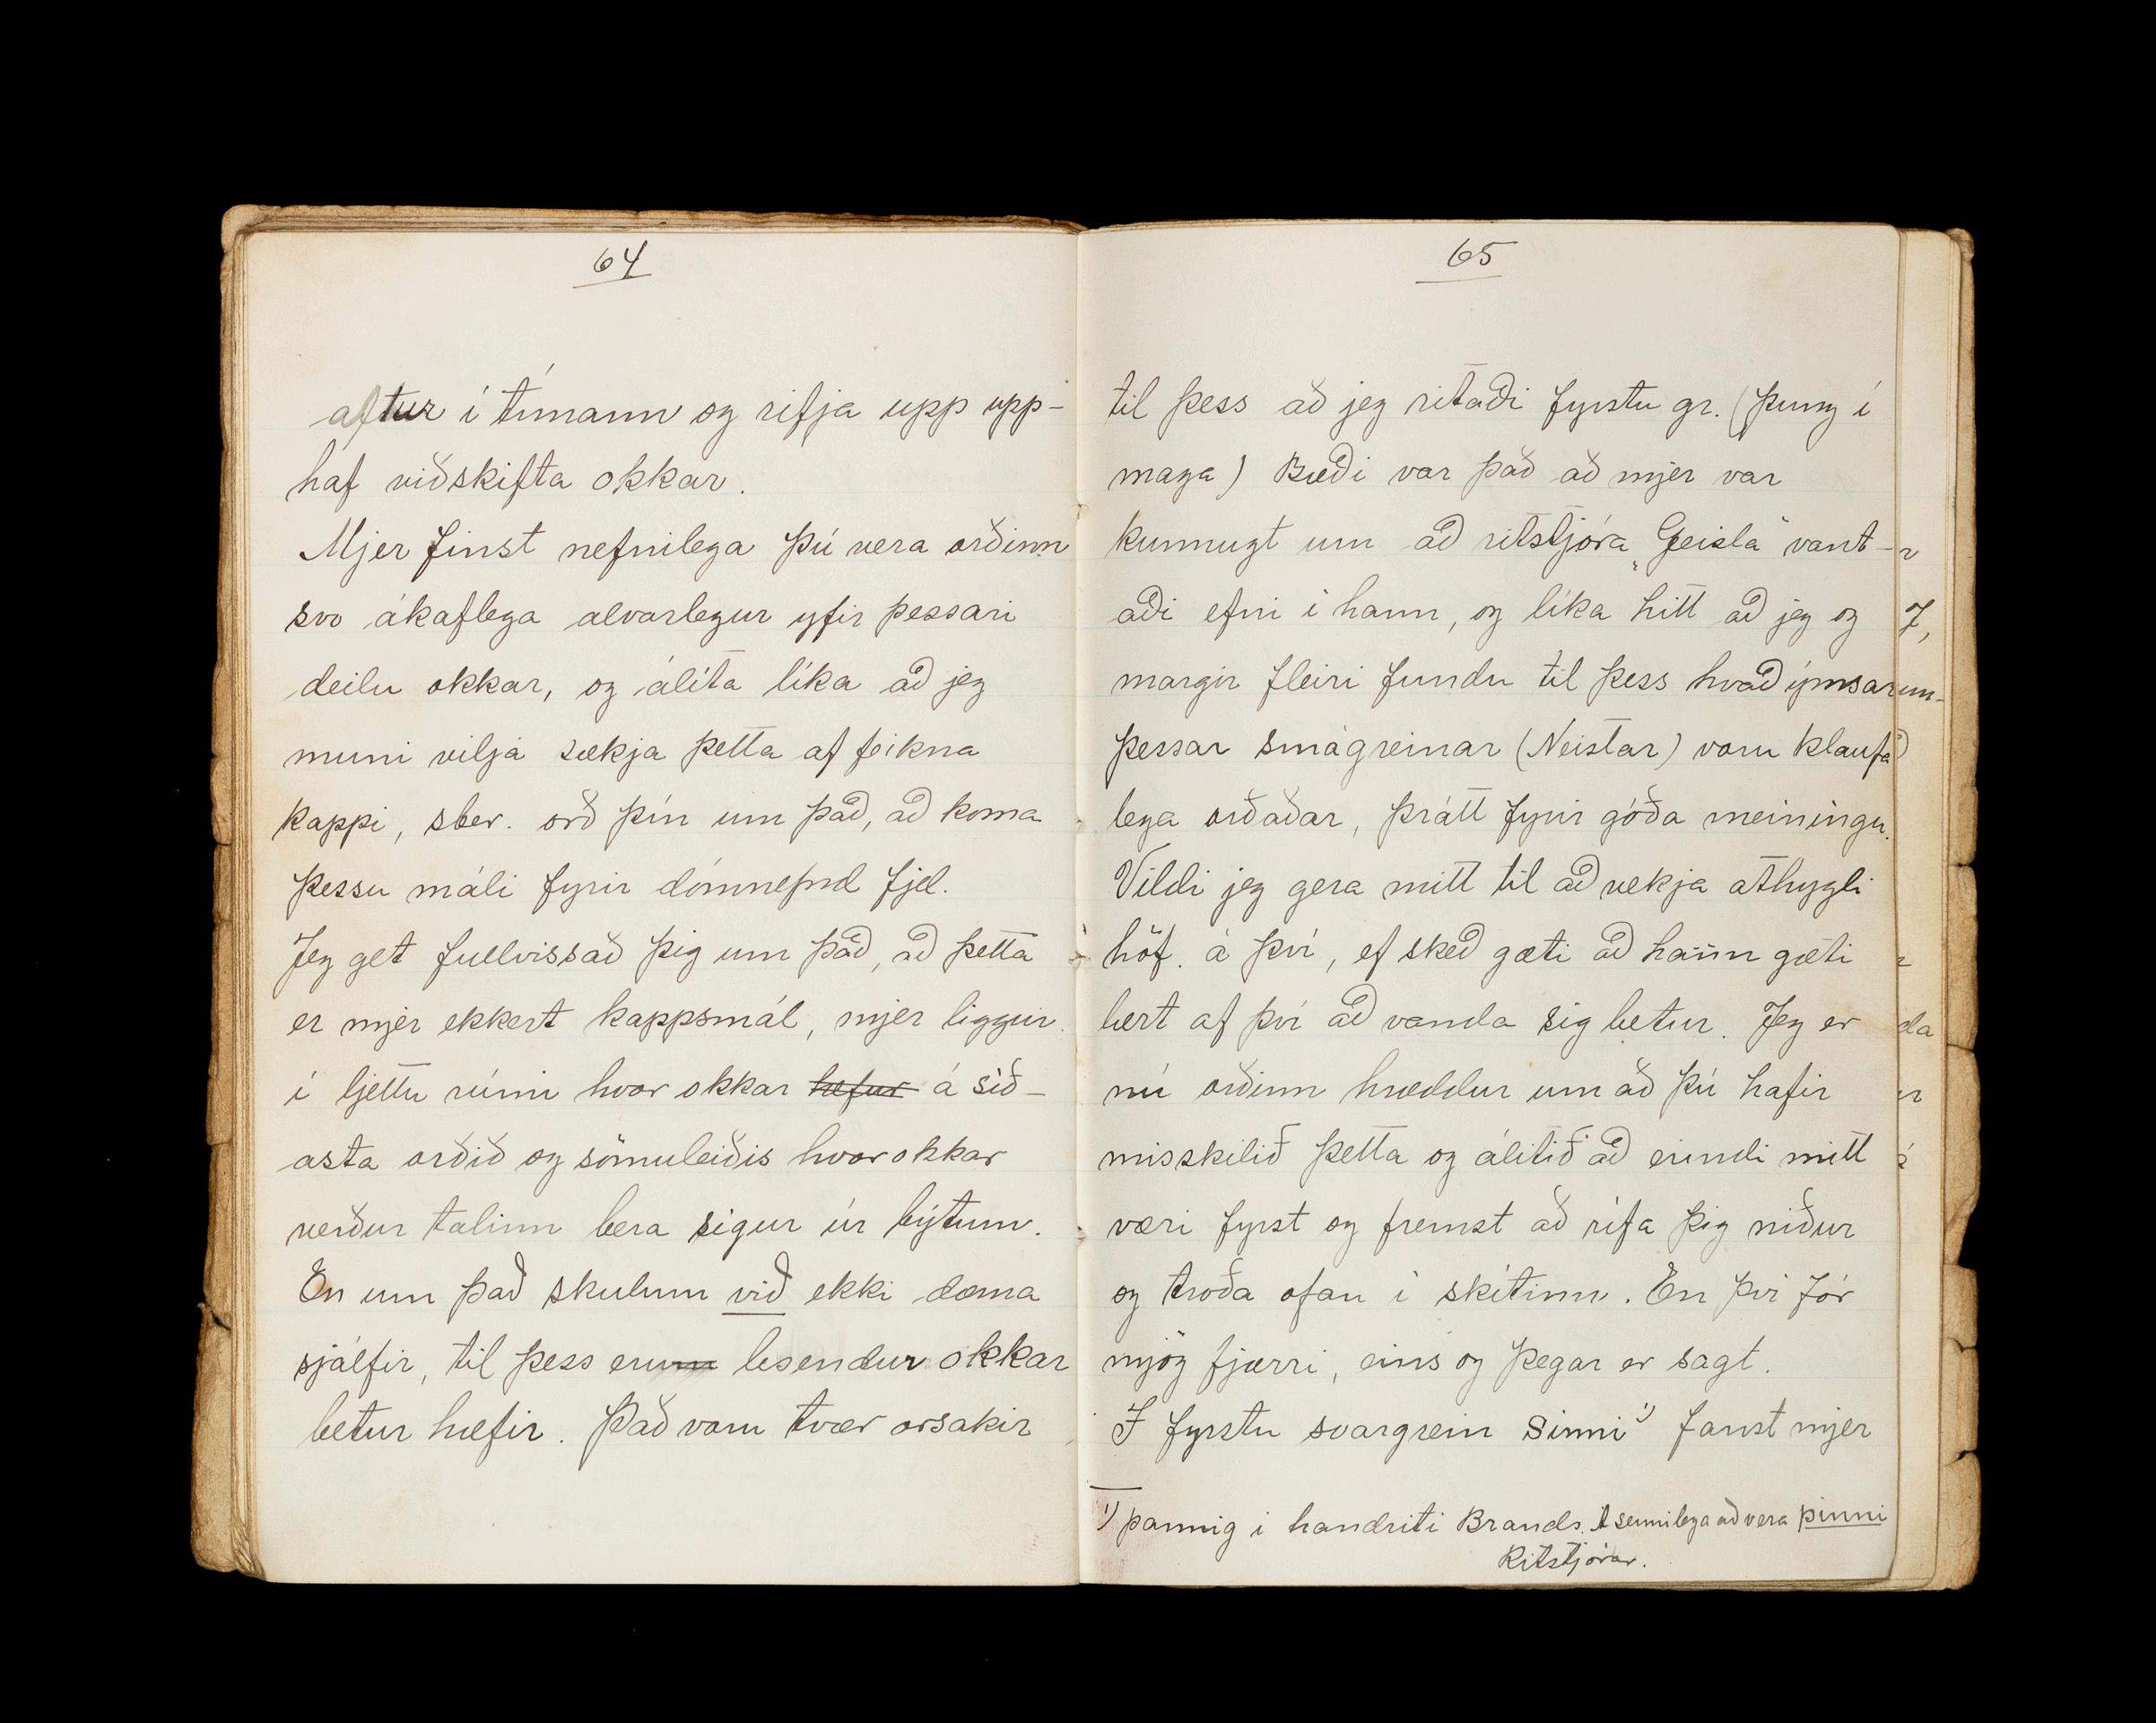 64
aftur í tímann og rifja upp upp-
haf viðskifta okkar.
Mjer finst nefnilega þú vera orðinn
svo ákaflega alvarlegur yfir þessari
deilu okkar, og álíta líka að jeg
muni vilja sækja þetta af feikna
kappi, sber. orð þín um það, að koma
þessu máli fyrir dómnefnd fjel.
Jeg get fullvissað þig um það, að þetta
er mjer ekkert kappsmál, mjer liggur
í ljettu rúmi hvor okkar hefur á síð-
asta orðið og sömuleiðis hvor okkar
verður talinn bera sigur úr býtum.
En um það skulum við ekki dæma
sjálfir, til þess erum lesendur okkar
betur hæfir. Það voru tvær orsakir
65
til þess að jeg ritaði fyrstu gr. (þung í
maga) Bæði var það að mjer var
kunnugt um að ritstjóra „Geisla" vant-
aði efni í hann, og líka hitt að jeg og
margir fleiri fundu til þess hvað ýmsar
þessar smágreinar (Neistar) voru klaufa
lega orðaðar, þrátt fyrir góða meiningu.
Vildi jeg gera mitt til að vekja athygli
höf. á því, ef skeð gæti að hann gæti
lært af því að vanda sig betur. Jeg er
nú orðinn hræddur um að þú hafir
misskilið þetta og álitið að erindi mitt
væri fyrst og fremst að rífa þig niður
og troða ofan í skítinn. En því fór
mjög fjærri, eins og þegar er sagt.
Í fyrstu svargrein sinni ¹) fanst mjer
¹) þannig í handriti Brands. Á sennilega að vera þinni
Ritstjórar.